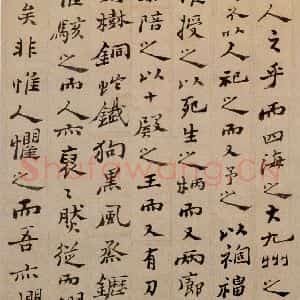 人之乎而四海之大九州之
不以人祀之而又予之以禍福
授之以死生之柄而又廊
陪之以十殿之王而又有刀
樹銅蛇鐵狗黑風蒸鑊
駭之而人亦裒〻然從而
矣非惟人懼之而吾亦懼
Shufawang.CN